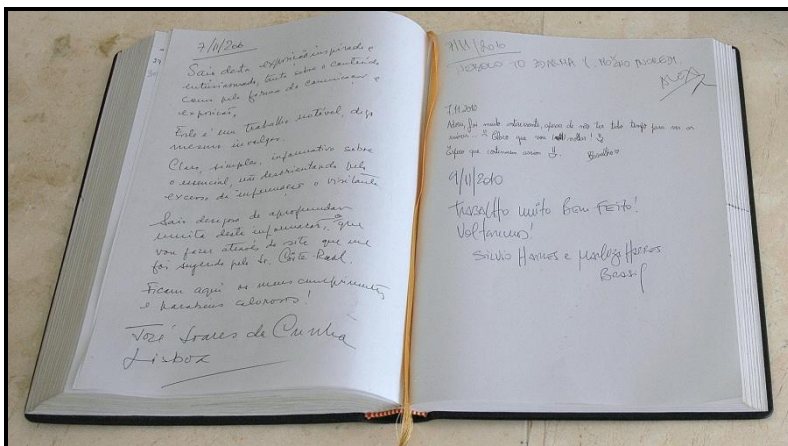 7/11/2010
Saio desta exposição inspirado e
entusiasmado, tanto sobre o conteúdo
como pela forma de comunicação e
exposição.
Este é um trabalho notável, digo
mesmo invulgar.
Claro, simples, informativo sobre
o essencial, não desorientando pelo
excesso de informação o visitante.
Saio desejoso de aprofundar
muita desta informação, o que
vou fazer através do site que me
foi sugerido pelo Sr. Costa Raal.
Ficam aqui os meus cumprimentos
e parabéns calorosos!
José Soares da Cunha
Lisboa
7/11/2010
7.11.2010
Adorei, foi muito interessante, apesar de não ter tido tempo para ver os
que vou voltar!
Espero que continuem assim
9/11/2010
TRABALHO muito Bem FEITO!
Voltaremos!
Silvio e
Brasil